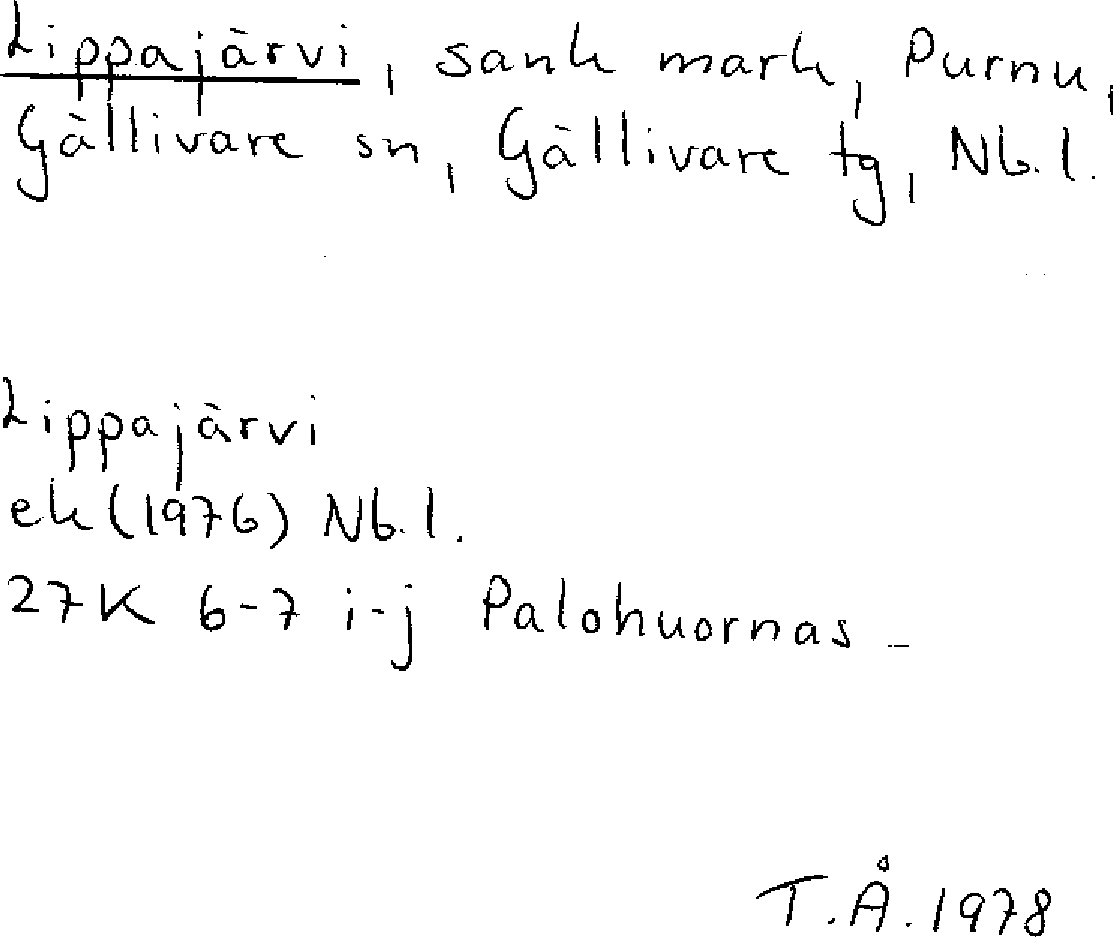 Lippajärvi, sank mark, Purnu,
Gällivare sn, Gällivare tg, Nb. l.
Lippajärvi
ek (1976) Nb. l.
27K 6-7 i-j Palohuornas
T.Å. 1978